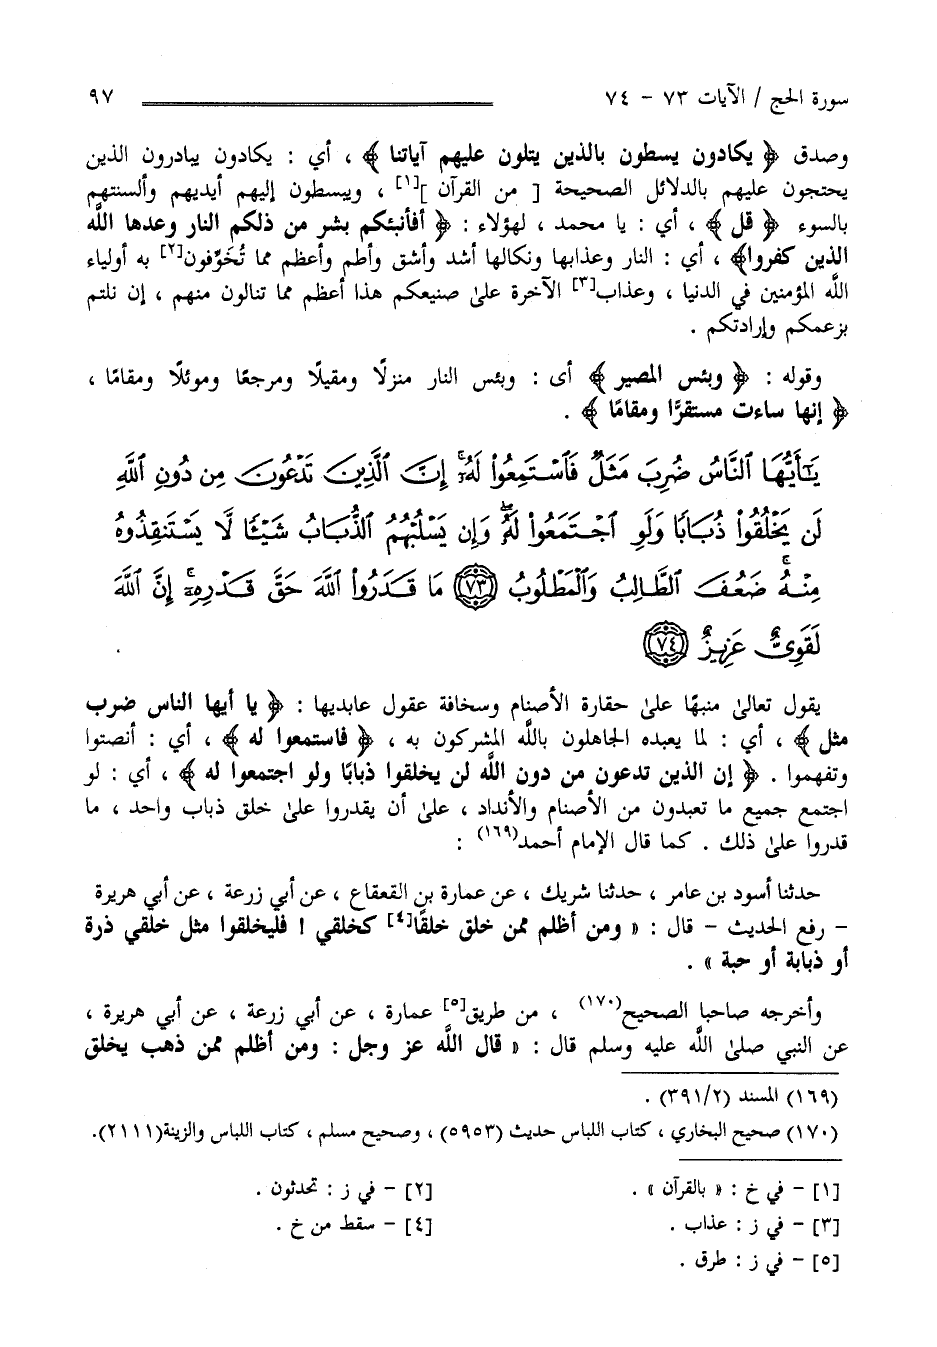 سورة الحج / الآيات ٧٣ - ٧٤ ٩٧
وصدق ﴿ يكادون يسطون بالذين يتلون عليهم آياتنا ﴾ ، أي : يكادون يبادرون الذين
يحتجون عليهم بالدلائل الصحيحة [ من القرآن ][١] ، ويبسطون إليهم أيديهم وألسنتهم
بالسوء ﴿ قل ﴾ ، أي : يا محمد ، لهؤلاء : ﴿ أفأنبئكم بشر من ذلكم النار وعدها اللَّه
الذين كفروا﴾ ، أي : النار وعذابها ونكالها أشد وأشق وأطم وأعظم مما تُخَوِّفون[٢] به أولياء
اللَّه المؤمنين في الدنيا ، وعذاب[٣] الآخرة علىٰ صنيعكم هذا أعظم مما تنالون منهم ، إن نلتم
بزعمكم وإرادتكم .
وقوله : ﴿ وبئس المصير ﴾ أى : وبئس النار منزلًا ومقيلًا ومرجعًا وموئلًا ومقامًا ،
﴿ إنها ساءت مستقرًّا ومقامًا ﴾ .
يَٰٓأَيُّهَا ٱلنَّاسُ ضُرِبَ مَثَلٌ فَٱسْتَمِعُوا۟ لَهُۥٓ ۚ إِنَّ ٱلَّذِينَ تَدْعُونَ مِن دُونِ ٱللَّهِ
لَن يَخْلُقُوا۟ ذُبَابًا وَلَوِ ٱجْتَمَعُوا۟ لَهُۥ ۖ وَإِن يَسْلُبْهُمُ ٱلذُّبَابُ شَيْـًٔا لَّا يَسْتَنقِذُوهُ
مِنْهُ ۚ ضَعُفَ ٱلطَّالِبُ وَٱلْمَطْلُوبُ ﴿٧٣﴾ مَا قَدَرُوا۟ ٱللَّهَ حَقَّ قَدْرِهِۦٓ ۚ إِنَّ ٱللَّهَ
لَقَوِىٌّ عَزِيزٌ ﴿٧٤﴾
يقول تعالىٰ منبهًا علىٰ حقارة الأصنام وسخافة عقول عابديها : ﴿ يا أيها الناس ضرب
مثل ﴾ ، أي : لما يعبده الجاهلون باللَّه المشركون به ، ﴿ فاستمعوا له ﴾ ، أي : أنصتوا
وتفهموا . ﴿ إن الذين تدعون من دون اللَّه لن يخلقوا ذبابًا ولو اجتمعوا له ﴾ ، أي : لو
اجتمع جميع ما تعبدون من الأصنام والأنداد ، علىٰ أن يقدروا علىٰ خلق ذباب واحد ، ما
قدروا علىٰ ذلك . كما قال الإمام أحمد(١٦٩) :
حدثنا أسود بن عامر ، حدثنا شريك ، عن عمارة بن القعقاع ، عن أبي زرعة ، عن أبي هريرة
- رفع الحديث - قال : « ومن أظلم ممن خلق خلقًا[٤] كخلقي ! فليخلقوا مثل خلقي ذرة
أو ذبابة أو حبة » .
وأخرجه صاحبا الصحيح(١٧٠) ، من طريق[٥] عمارة ، عن أبي زرعة ، عن أبي هريرة ،
عن النبي صلىٰ اللَّه عليه وسلم قال : « قال اللَّه عز وجل : ومن أظلم ممن ذهب يخلق
(١٦٩) المسند (٣٩١/٢) .
(١٧٠) صحيح البخاري ، كتاب اللباس حديث (٥٩٥٣) ، وصحيح مسلم ، كتاب اللباس والزينة(٢١١١).
[١] - في خ : « بالقرآن » . [٢] - في ز : تحدثون .
[٣] - في ز : عذاب . [٤] - سقط من خ .
[٥] - في ز : طرق .